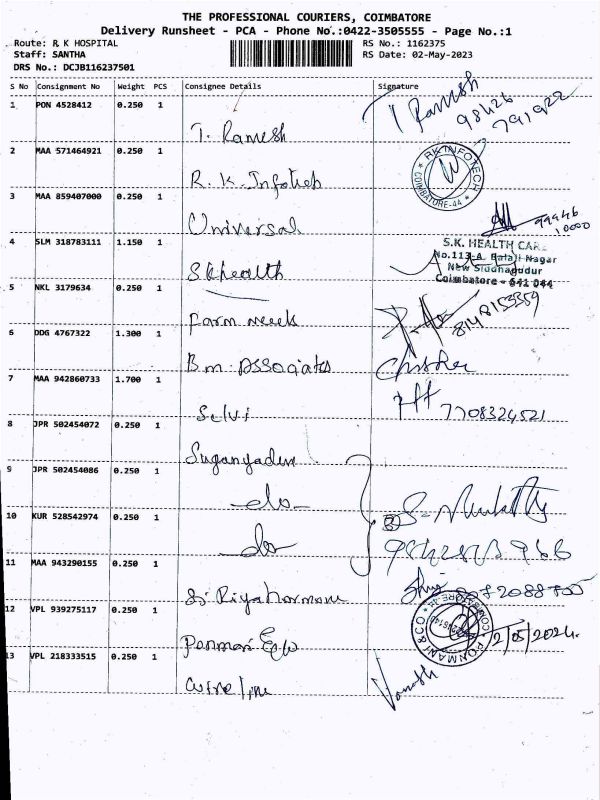 THE PROFESSIONAL COURIERS, COIMBATORE
Delivery Runsheet - PCA - Phone No.:0422-3505555 - Page No.:1
Route: R K HOSPITAL RS No.: 1162375
Staff: SANTHA RS Date: 02-May-2023
DRS No.: DCJB116237501
S No Consignment No Weight PCS Consignee Details Signature
1 PON 4528412 0.250 1
T. Ramesh T Ramesh
98426
791922
2 MAA 571464921 0.250 1
R.K. Infotech RK INFOTECH COIMBATORE-44
3 MAA 859407000 0.250 1
Universal 99946
10000
4 SLM 318783111 1.150 1
S.K. HEALTH CARE
No.113-A, Balaji Nagar
New Siddhapudur
Coimbatore - 641 044
Skhealth
5 NKL 3179634 0.250 1
Farm needs 8148153359
6 DDG 4767322 1.300 1
B.m Associates
7 MAA 942860733 1.700 1
Selvi 7708324521
8 JPR 502454072 0.250 1
Suganyadevi
9 JPR 502454086 0.250 1
-do-
10 KUR 528542974 0.250 1
do
11 MAA 943290155 0.250 1
12 VPL 939275117 0.250 1
PONMANI & CO COIMBATORE
13 VPL 218333515 0.250 1